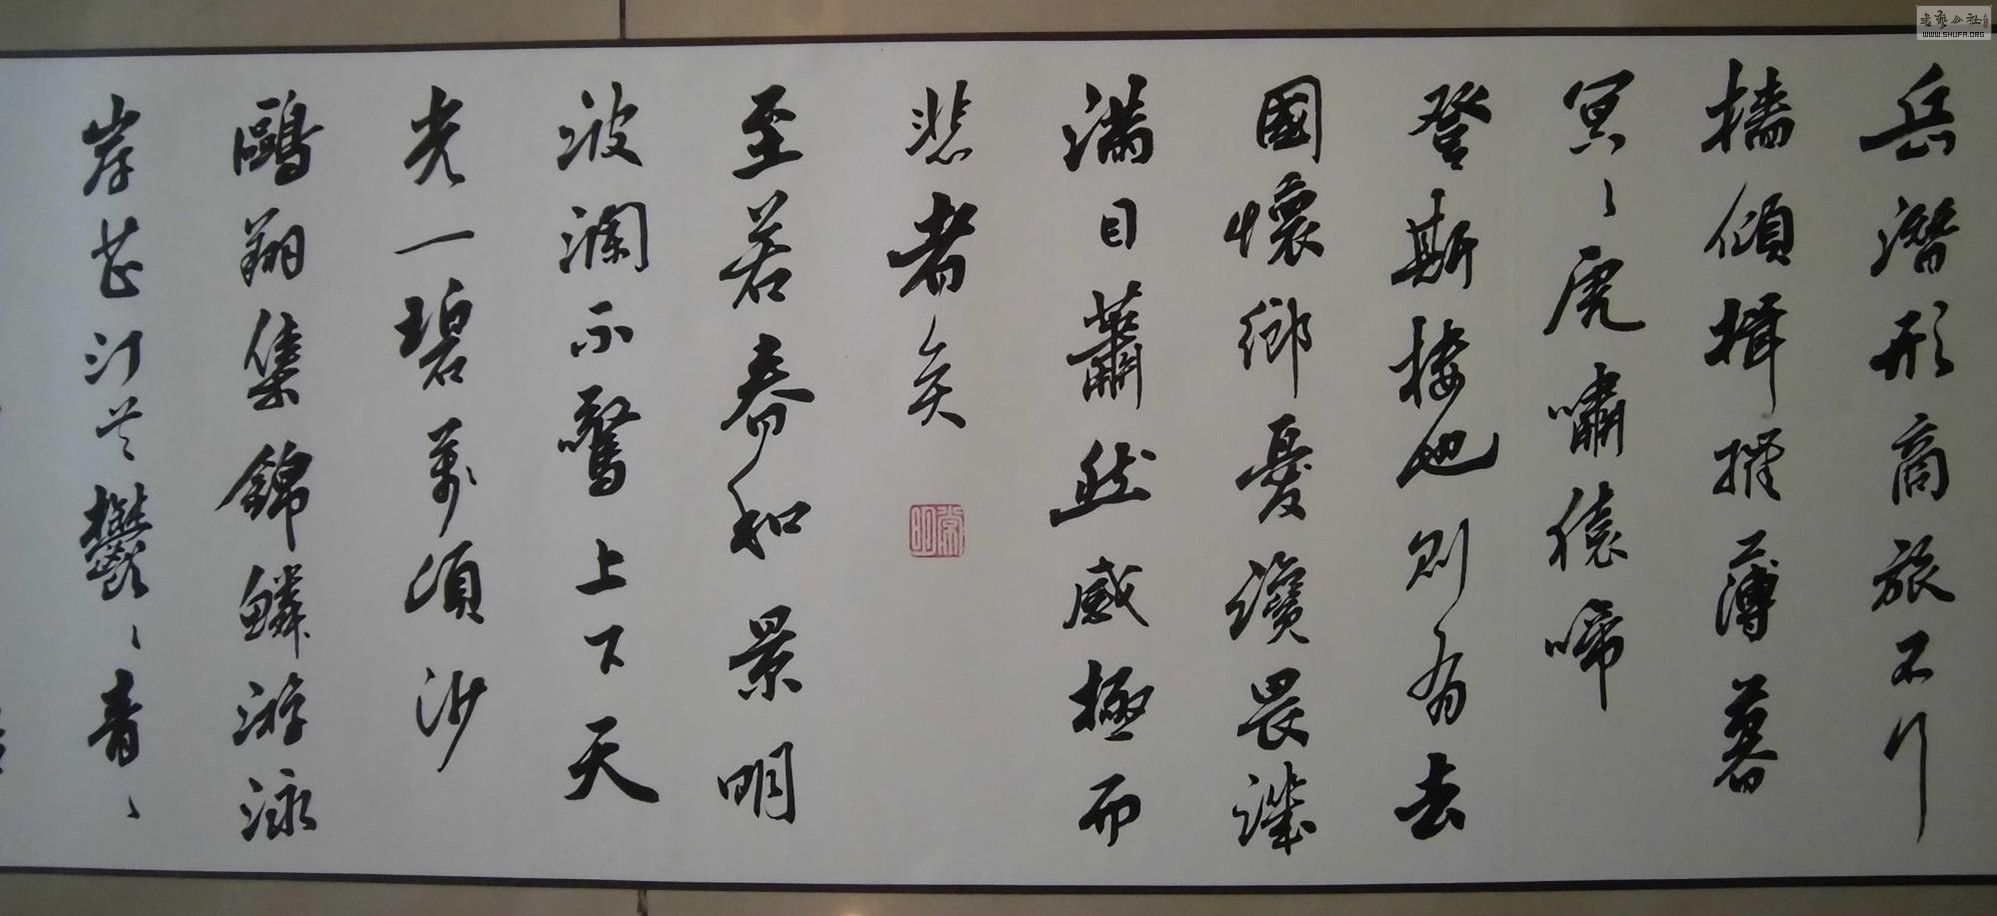 岳潛形商旅不行
檣傾楫摧薄暮
冥〻虎嘯猿啼
登斯樓也則有去
國懷鄉憂讒畏譏
滿目蕭然感極而
悲者矣
至若春和景明
波瀾不驚上下天
光一碧萬頃沙
鷗翔集錦鱗游泳
岸芷汀蘭鬱〻青〻
書藝公社
WWW.SHUFA.ORG